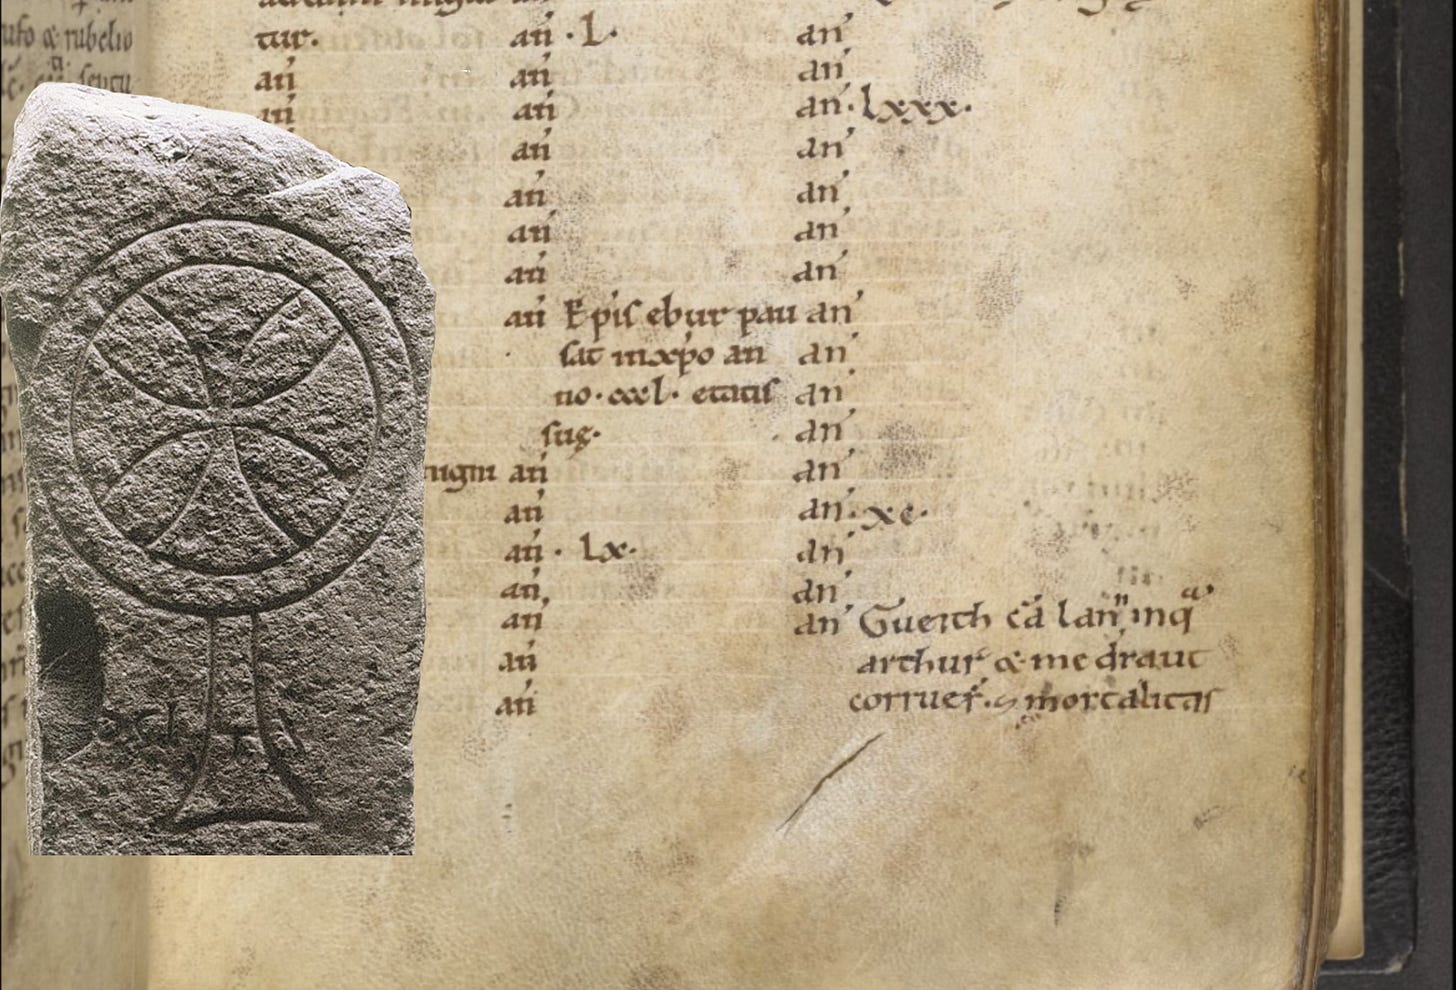 rufo & rubelio
tur.
an̄
an̄
nigni
an̄ · L ·
an̄
an̄
an̄
an̄
an̄
an̄
an̄ Epiſ ebur pau
ſat inxp̄o an
no · cccl · etatiſ
ſuę ·
an̄
an̄
an̄ · Lx ·
an̄
an̄
an̄
an̄
an̄
an̄
an̄ · lxxx ·
an̄
an̄
an̄
an̄
an̄
an̄
an̄
an̄
an̄
an̄ · xc ·
an̄
an̄
an̄ Gueith cā lann inq̄
arthur & medraut
corruer̄ · & mortalitaſ